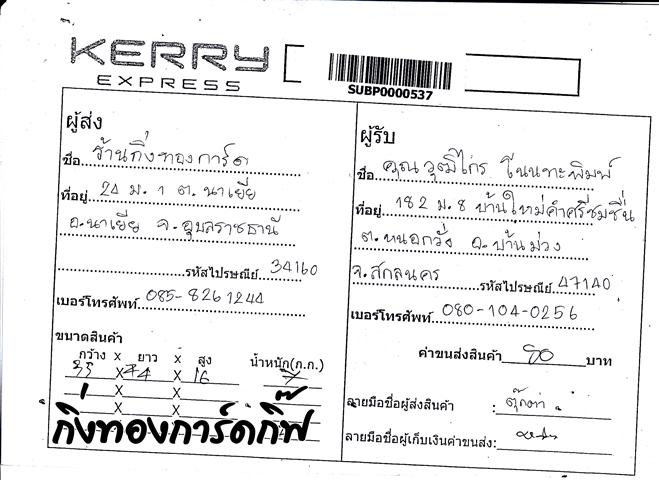 KERRY
EXPRESS
SUBP0000537
ผู้ส่ง
ชื่อ ร้านกิ่งทองการ์ด
ที่อยู่ 24 ม. 1 ต. นาเยีย
อ.นาเยีย จ.อุบลราชธานี
รหัสไปรษณีย์ 34160
เบอร์โทรศัพท์ 085-8261244
ขนาดสินค้า
กว้าง x ยาว x สูง น้ำหนัก(ก.ก.)
35 X 44 X 16 7
X X
X X
กิ่งทองการ์ดกิ๊ฟ
ผู้รับ
ชื่อ คุณวุฒิไกร โนนทะพิมพ์
ที่อยู่ 182 ม.8 บ้านใหม่คำศรีชมชื่น
ต.หนองกวั่ง อ.บ้านม่วง
จ.สกลนคร รหัสไปรษณีย์ 47140
เบอร์โทรศัพท์ 080-104-0256
ค่าขนส่งสินค้า 80 บาท
ลายมือชื่อผู้ส่งสินค้า : ตุ๊กตา
ลายมือชื่อผู้เก็บเงินค่าขนส่ง: